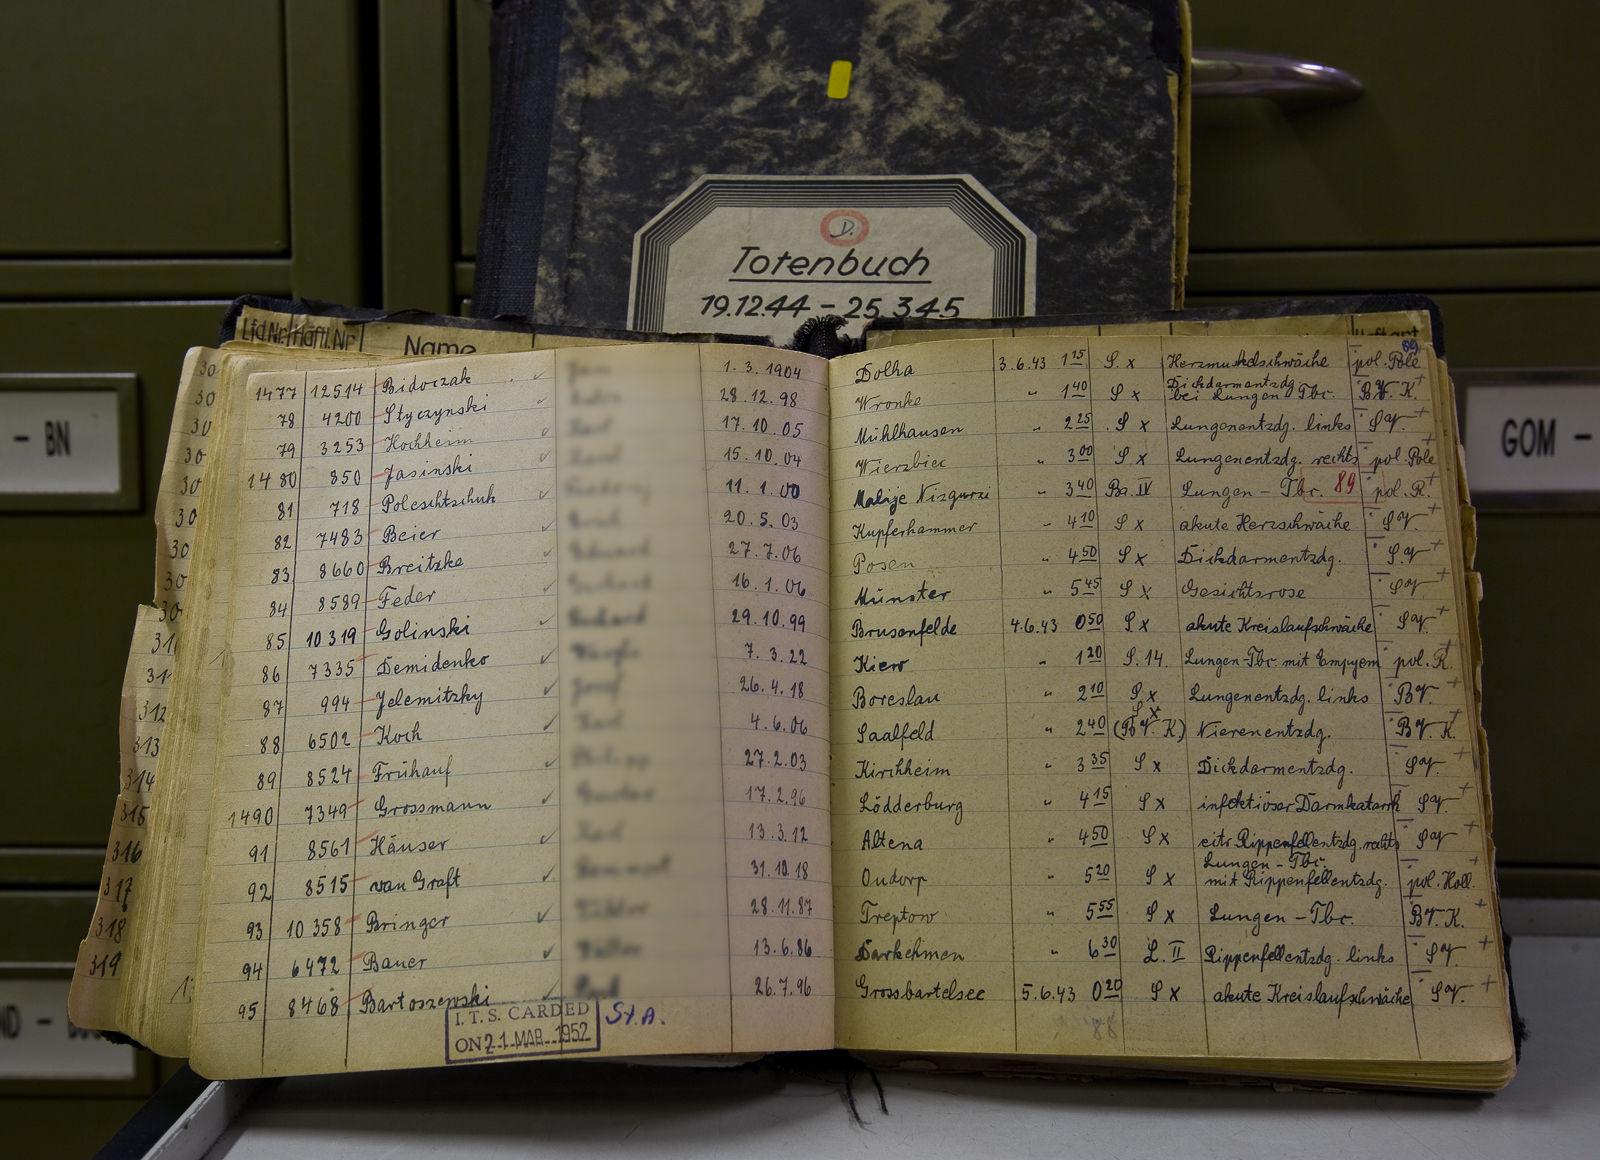 D.
Totenbuch
19.12.44 – 25.3.45
– BN
GOM –
Lfd.Nr. Häftl.Nr. Name
1477 12514 Bidoczak 1.3.1904 Dolha 3.6.43 1 15 S. x Herzmuskelschwäche pol. Pole
78 4200 Styczynski 28.12.98 Wronke " 1 40 S x Dickdarmentzdg. bei Lungen Tbc. B.V. K.
79 3253 Hochheim 17.10.05 Mühlhausen " 2 25 S x Lungenentzdg. links
1480 850 Jasinski 15.10.04 Wierzbiec " 3 00 S x Lungenentzdg. rechts pol. Pole
81 718 Poleschtschuk 11.1.00 Malije Nizgurzi " 3 40 Ba. IV Lungen – Tbc. 89 pol. R.
82 7483 Beier 20.5.03 Kupferhammer " 4 10 S x akute Herzschwäche
83 8660 Breitzke 27.7.06 Posen " 4 50 S x Dickdarmentzdg.
84 8589 Feder 16.1.06 Münster " 5 45 S x Gesichtsrose
85 10319 Golinski 29.10.99 Brusenfelde 4.6.43 0 50 S x akute Kreislaufschwäche
86 7335 Demidenko 7.3.22 Kiew " 1 20 S. 14. Lungen Tbc. mit Empyem pol. R.
87 994 Jelemitzky 26.4.18 Boreslau " 2 10 S x Lungenentzdg. links BV.
88 6502 Koch 4.6.06 Saalfeld " 2 40 S x (B.V. K.) Nierenentzdg. B.V. K.
89 8524 Frühauf 27.2.03 Kirchheim " 3 35 S x Dickdarmentzdg.
1490 7349 Grossmann 17.2.96 Lödderburg " 4 15 S x infektiöser Darmkatarrh
91 8561 Häuser 13.3.12 Altena " 4 50 S x eitr. Rippenfellentzdg. rechts
92 8515 van Graft 31.10.18 Oudorp " 5 20 S x Lungen – Tbc. mit Rippenfellentzdg. pol. Holl.
93 10358 Bringer 28.11.87 Treptow " 5 55 S x Lungen – Tbc. BV. K.
94 6472 Bauer 13.6.86 Darkehmen " 6 30 L. II Rippenfellentzdg. links
95 8468 Bartoszewski 26.7.96 Grossbartelsee 5.6.43 0 20 S x akute Kreislaufschwäche
I.T.S. CARDED
ON 21. MAR. 1952
St.A.
30
30
30
30
30
30
30
30
30
31
31
312
313
314
315
316
317
318
319